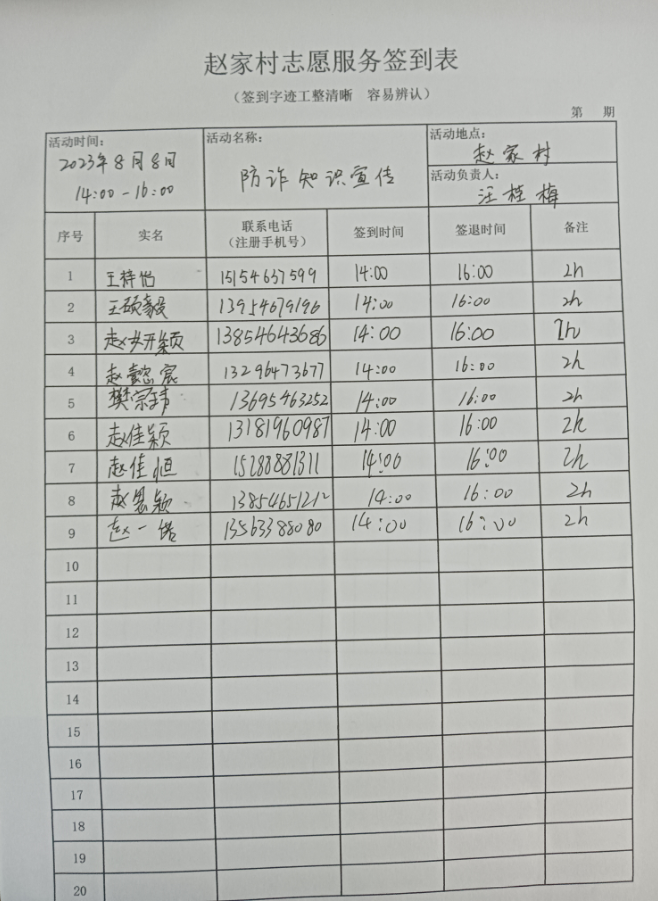 赵家村志愿服务签到表
（签到字迹工整清晰 容易辨认）
第 期
活动时间： 活动名称： 活动地点：
2023年8月8日 防诈知识宣传 赵家村
14:00-16:00 活动负责人：
汪桂梅
序号 实名 联系电话（注册手机号） 签到时间 签退时间 备注
1 王梓怡 15154637599 14:00 16:00 2h
2 王硕毅 13954679196 14:00 16:00 2h
3 赵妍颖 13854643686 14:00 16:00 2h
4 赵懿宸 13296473677 14:00 16:00 2h
5 樊宗玮 13695463252 14:00 16:00 2h
6 赵佳颖 13181960987 14:00 16:00 2h
7 赵佳恒 15288881311 14:00 16:00 2h
8 赵思颖 13854651212 14:00 16:00 2h
9 赵一诺 13563388080 14:00 16:00 2h
10
11
12
13
14
15
16
17
18
19
20